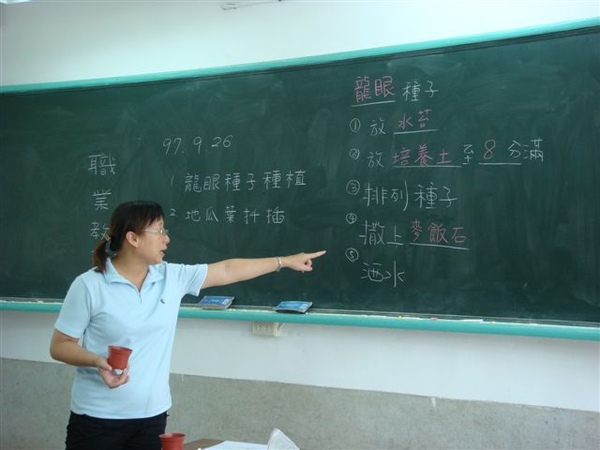 職業教
97.9.26
1. 龍眼種子種植
2. 地瓜葉扦插
龍眼種子
① 放水苔
② 放培養土至8分滿
③ 排列種子
④ 撒上麥飯石
⑤ 洒水